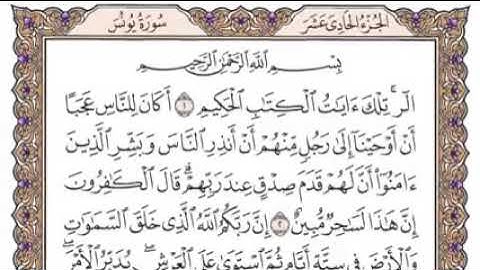 الجزء الحادي عشر
سورة يونس
بِسْمِ ٱللَّهِ ٱلرَّحْمَٰنِ ٱلرَّحِيمِ
الٓر ۚ تِلْكَ ءَايَٰتُ ٱلْكِتَٰبِ ٱلْحَكِيمِ ١ أَكَانَ لِلنَّاسِ عَجَبًا
أَنْ أَوْحَيْنَآ إِلَىٰ رَجُلٍ مِّنْهُمْ أَنْ أَنذِرِ ٱلنَّاسَ وَبَشِّرِ ٱلَّذِينَ
ءَامَنُوٓا۟ أَنَّ لَهُمْ قَدَمَ صِدْقٍ عِندَ رَبِّهِمْ ۗ قَالَ ٱلْكَٰفِرُونَ
إِنَّ هَٰذَا لَسَٰحِرٌ مُّبِينٌ ٢ إِنَّ رَبَّكُمُ ٱللَّهُ ٱلَّذِى خَلَقَ ٱلسَّمَٰوَٰتِ
وَٱلْأَرْضَ فِى سِتَّةِ أَيَّامٍ ثُمَّ ٱسْتَوَىٰ عَلَى ٱلْعَرْشِ ۖ يُدَبِّرُ ٱلْأَمْرَ ۖ